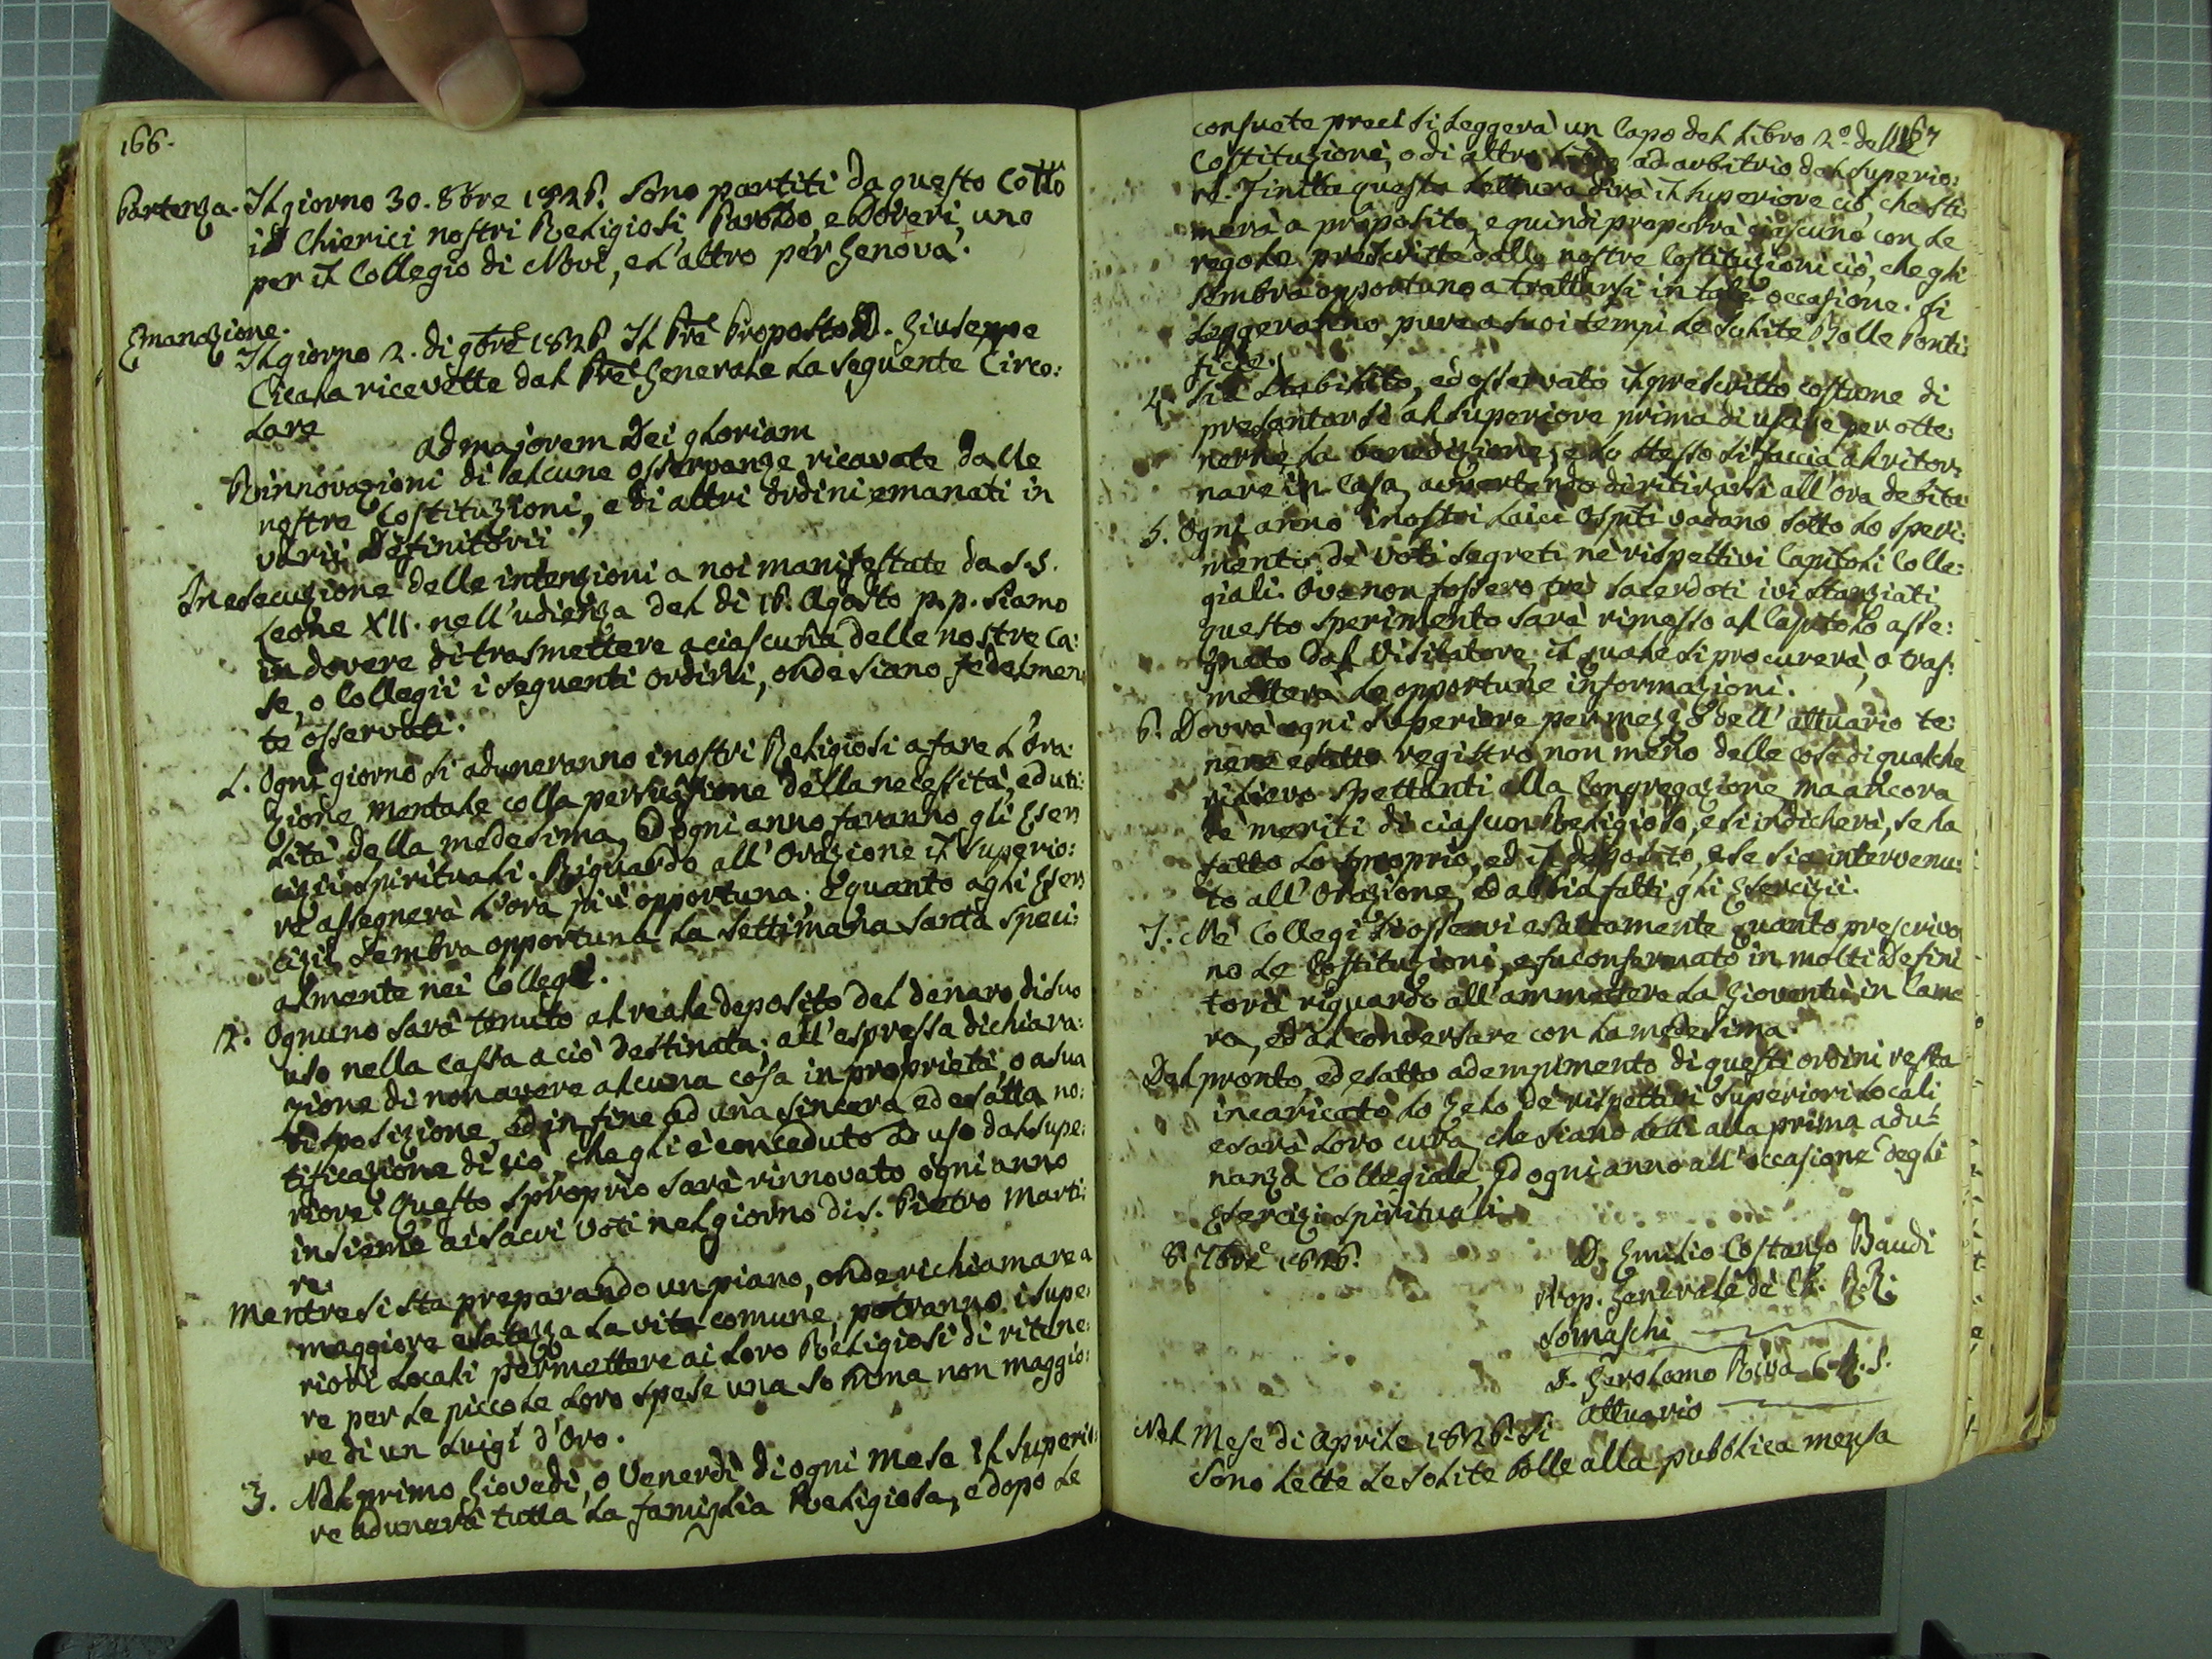 166.
Partenza. Il giorno 30. 8bre 1826. sono partiti da questo Collo
i Chierici nostri Religiosi Paroldo, e Doveri, uno
per il Collegio di Novi, e l'altro per Genova.
Emanazione.
Il giorno 2. di 9bre 1826 Il Pre Proposto D. Giuseppe
Cicala ricevette dal Pre Generale la seguente Circo:
lare
ad majorem Dei gloriam
Rinnovazioni di alcune osservanze ricavate dalle
nostre Costituzioni, e di altri ordini emanati in
varii Definitorii
In esecuzione delle intenzioni a noi manifestate da S.S.
Leone XII. nell'udienza del dì 16. Agosto p.p. siamo
in dovere di trasmettere a ciascuna delle nostre Ca:
se, o Collegii i seguenti ordini, onde siano fedelmen
te osservati.
1. Ogni giorno si aduneranno i nostri Religiosi a fare l'ora:
zione mentale colla persuasione della necessità, ed uti:
lità della medesima, ed ogni anno faranno gli Eser
cizii spirituali. Riguardo all'Orazione il Superio:
re assegnerà l'ora più opportuna; e quanto agli Eser
cizii sembra opportuna la Settimana Santa speci:
almente nei Collegi.
2. Ognuno sarà tenuto al reale deposito del denaro di suo
uso nella cassa a ciò destinata; all'espressa dichiara:
zione di non avere alcuna cosa in proprietà, o a sua
disposizione, ed in fine ad una sincera ed esatta no:
tificazione di ciò, che gli è conceduto ad uso dal Supe:
riore. Questo sproprio sarà rinnovato ogni anno
insieme ai sacri Voti nel giorno di S. Pietro Marti:
re.
Mentre si sta preparando un piano, onde richiamare a
maggiore esatezza la vita comune, potranno i supe:
riori locali permettere ai loro Religiosi di ritene:
re per le piccole loro spese una somma non maggio:
re di un Luigi d'Oro.
3. Nel primo Giovedì, o Venerdì di ogni Mese il Superio:
re adunerà tutta la famiglia Religiosa, e dopo le
167
consuete preci si leggerà un Capo del Libro 2º. delle
Costituzioni, o di altro Libro ad arbitrio del Superio:
re. Finita questa Lettura dirà il Superiore ciò, che sti:
merà a proposito, e quindi proporrà ciascuno con le
regole prescritte dalle nostre Costituzioni ciò, che gli
sembra opportuno a trattarsi in tale occasione. Si
leggeranno pure a suoi tempi le solite Bolle Ponti:
ficie.
4. Sia stabilito, ed osservato il prescritto costume di
presentarsi al Superiore prima di uscire per otte:
nerne la benedizione, e lo stesso si faccia al ritor:
nare in Casa, avvertendo di ritirarsi all'ora debita
5. Ogni anno i nostri Laici Ospiti vadano sotto lo speri:
mento de' Voti segreti ne' rispettivi Capitoli Colle:
giali. Ove non fossero tre sacerdoti ivi stanziati
questo sperimento sarà rimesso al Capitolo asse:
gnato dal Visitatore, il quale si procurerà, o tras:
metterà le opportune informazioni.
6. Dovrà ogni Superiore per mezzo dell'attuario te:
nere esatto registro non meno delle cose di qualche
rilievo spettanti alla Congregazione, ma ancora
de' meriti di ciascun Religioso, e si indicherà, se ha
fatto lo sproprio, ed il deposito, e se sia intervenu:
to all'Orazione, ed abbia fatti gli Esercizii.
7. Ne' Collegi si osservi esattamente quanto prescrivo
no le Costituzioni, e fu confermato in molti Defini
torii riguardo all'ammettere la Gioventù in Came
ra, ed al conversare con la medesima.
Del pronto, ed esatto adempimento di questi ordini resta
incaricato lo zelo de' rispettivi Superiori Locali
e sarà loro cura, che siano letti alla prima adu:
nanza Collegiale, ed ogni anno all'occasione degli
Esercizi spirituali
8. 7bre 1826.
D. Emilio Costanzo Baudi
Prop. Generale de' Ch. RR.
Somaschi
D. Gerolamo Riva C.R.S.
attuario
Nel Mese di Aprile 1826. si
sono lette le solite bolle alla pubblica mensa